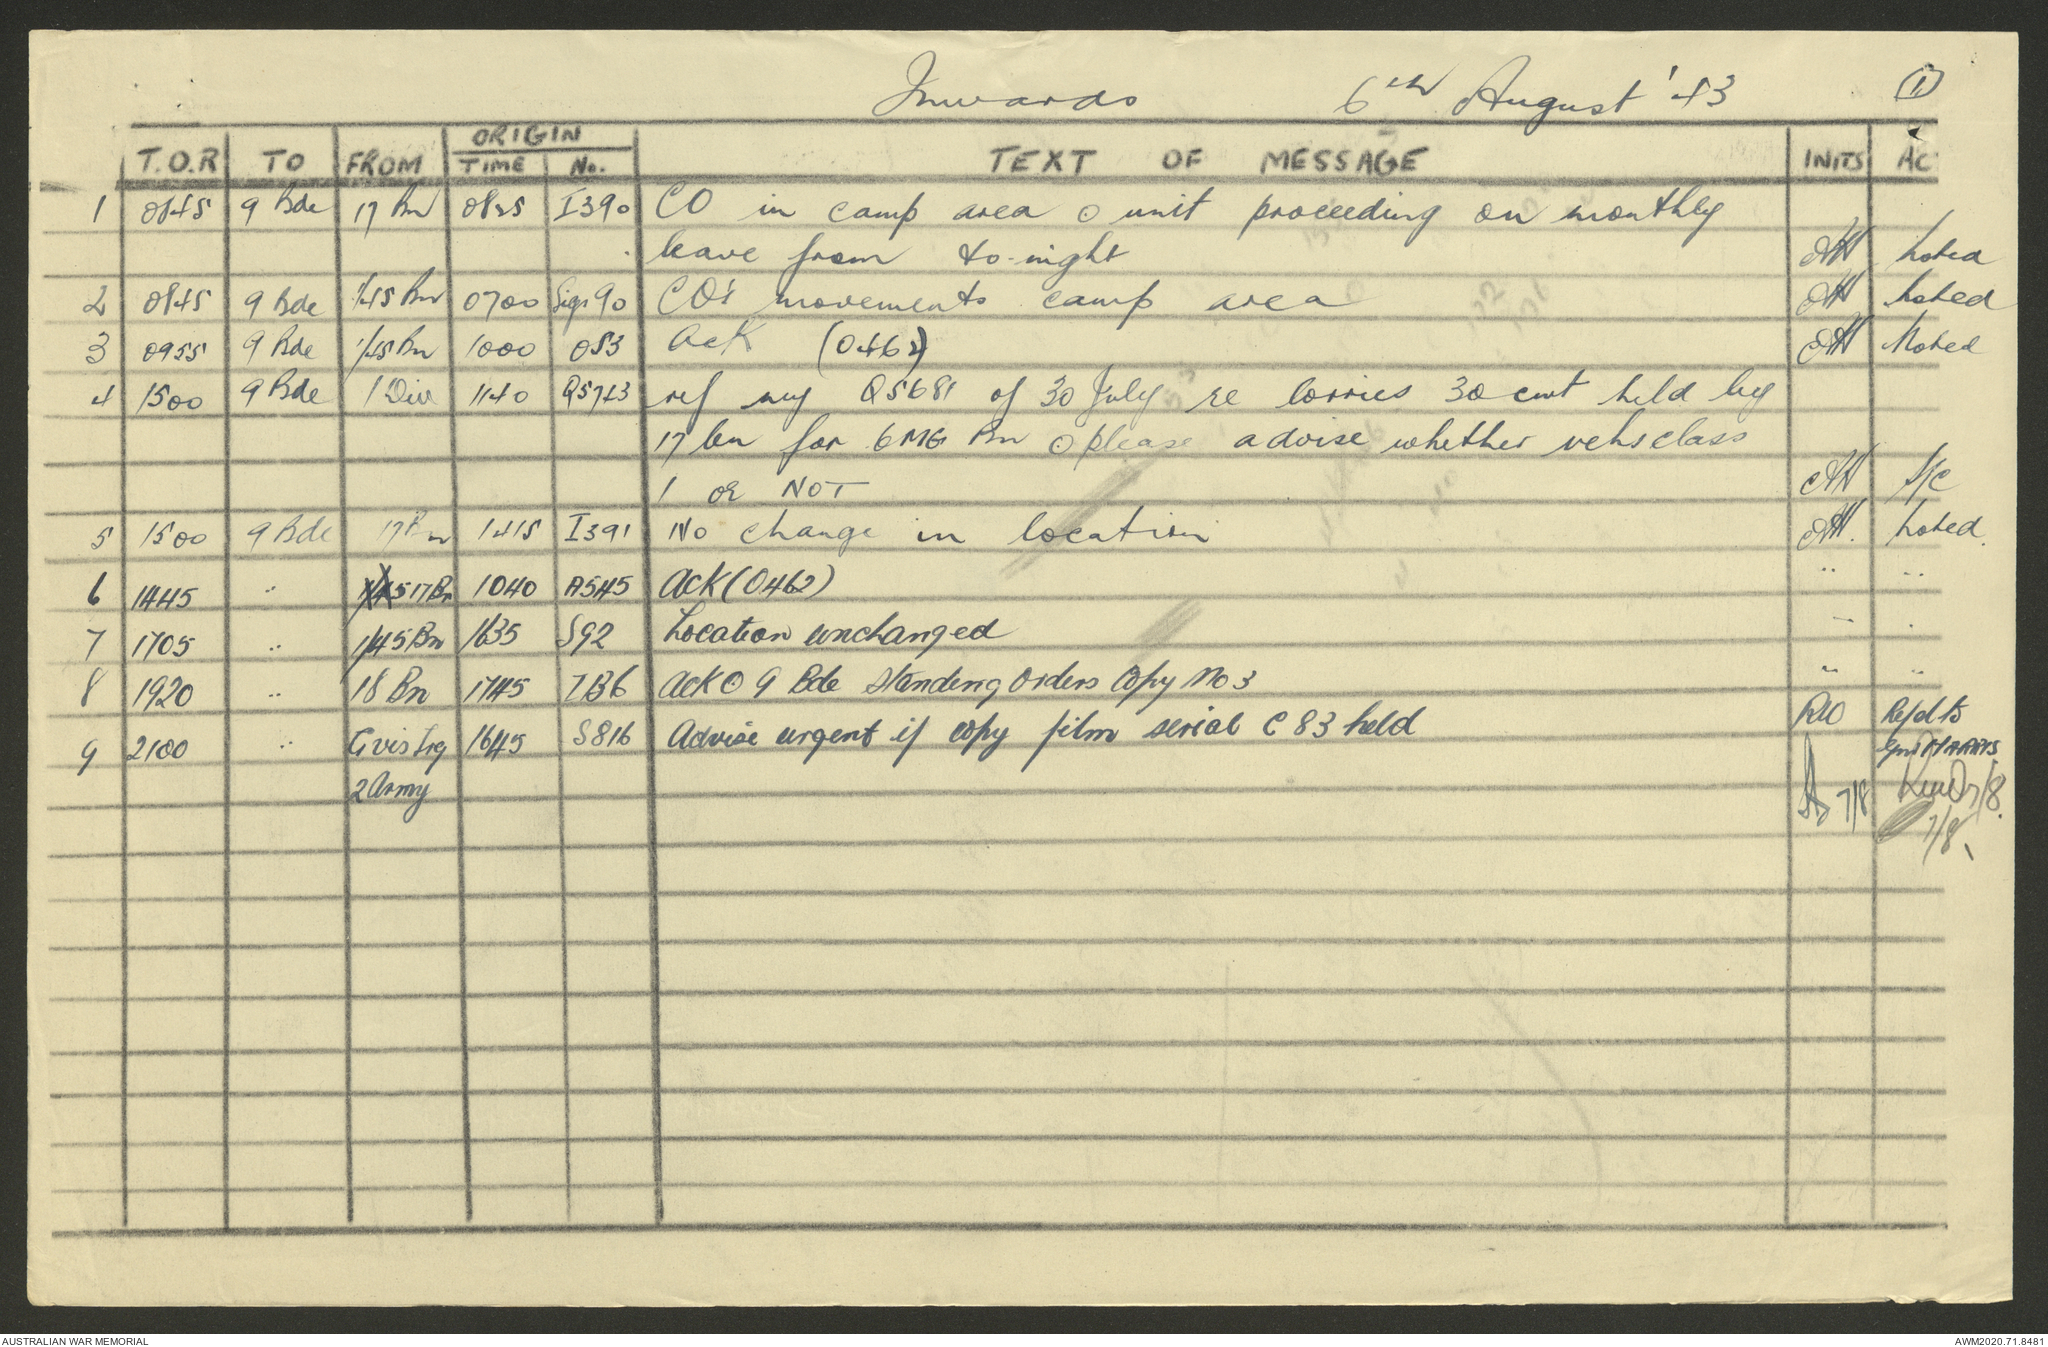 Inwards 6th August '43 (1)
ORIGIN
T.O.R TO FROM TIME No. TEXT OF MESSAGE INITS AC
1 0845 9 Bde 17 Bn 0825 I390 CO in camp area ⊙ unit proceeding on monthly
leave from to-night noted
2 0845 9 Bde 1/45 Bn 0700 Sigs 90 CO's movements camp area noted
3 0955 9 Bde 1/45 Bn 1000 OS3 Ack (0462) Noted
4 1500 9 Bde 1 Div 1140 Q5743 ref my Q5681 of 30 July re lorries 30 cwt held by
17 bn for 6 MG Bn ⊙ please advise whether vehs class
1 or NOT S/C
5 1500 9 Bde 17 Bn 1415 I391 No change in location noted.
6 1445 " 17 Bn 1040 A545 Ack (0462) " "
7 1705 " 1/45 Bn 1635 S92 Location unchanged "
8 1920 " 18 Bn 1745 IB6 Ack ⊙ 9 Bde Standing Orders Copy No 3 " "
9 2100 " Gvis trg 1645 S816 Advise urgent if copy film serial C 83 held
2 Army 7/8
7/8